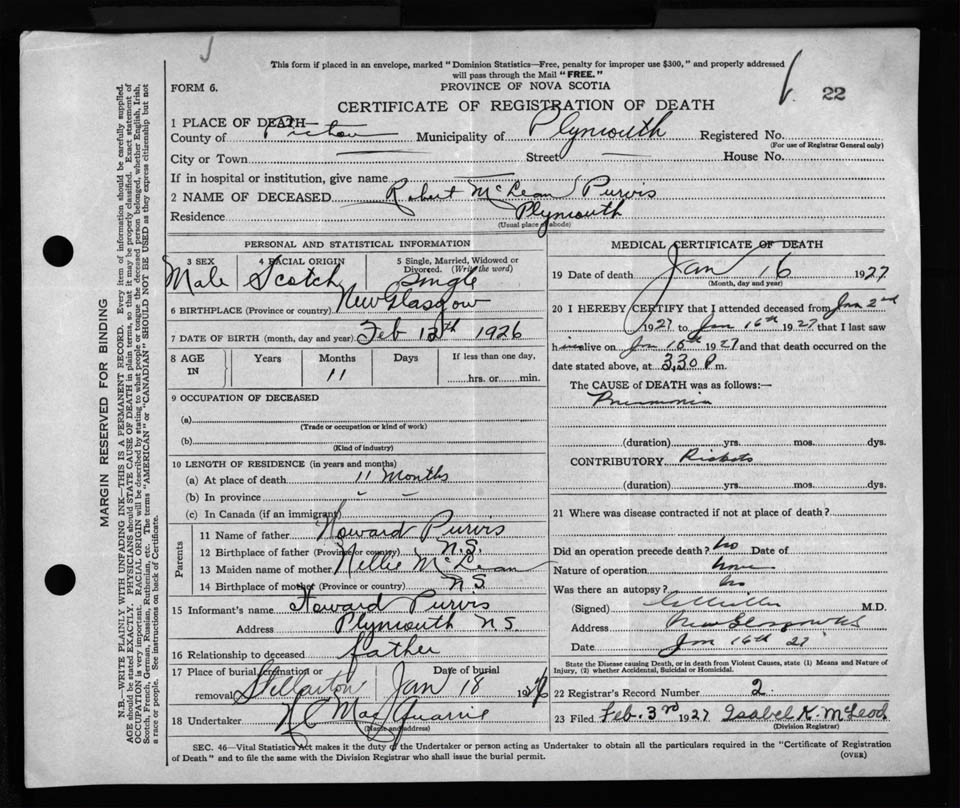 This form if placed in an envelope, marked "Dominion Statistics—Free, penalty for improper use $300," and properly addressed
will pass through the Mail "FREE."
FORM 6.
PROVINCE OF NOVA SCOTIA
22
CERTIFICATE OF REGISTRATION OF DEATH
1 PLACE OF DEATH
County of Pictou Municipality of Plymouth Registered No.
(For use of Registrar General only)
City or Town Street House No.
If in hospital or institution, give name
2 NAME OF DECEASED Robert McLean Purvis
Residence Plymouth
(Usual place of abode)
PERSONAL AND STATISTICAL INFORMATION
3 SEX 4 RACIAL ORIGIN 5 Single, Married, Widowed or Divorced. (Write the word)
Male Scotch Single
6 BIRTHPLACE (Province or country) New Glasgow
7 DATE OF BIRTH (month, day and year) Feb 12th 1926
8 AGE IN Years Months Days If less than one day,
11 hrs. or min.
9 OCCUPATION OF DECEASED
(a)
(Trade or occupation or kind of work)
(b)
(Kind of industry)
10 LENGTH OF RESIDENCE (in years and months)
(a) At place of death 11 Months
(b) In province " "
(c) In Canada (if an immigrant)
Parents
11 Name of father Howard Purvis
12 Birthplace of father (Province or country) N.S.
13 Maiden name of mother Nellie McLean
14 Birthplace of mother (Province or country) N.S.
15 Informant's name Howard Purvis
Address Plymouth N.S.
16 Relationship to deceased father
17 Place of burial, cremation or removal Stellarton Date of burial Jan 18 1927
18 Undertaker MacQuarrie
(Name and address)
MEDICAL CERTIFICATE OF DEATH
19 Date of death Jan 16 1927
(Month, day and year)
20 I HEREBY CERTIFY that I attended deceased from Jan 2nd
1927 to Jan 16th 1927 that I last saw
him alive on Jan 15th 1927 and that death occurred on the
date stated above, at 3.30 P m.
The CAUSE OF DEATH was as follows:—
Pneumonia
(duration) yrs. mos. dys.
CONTRIBUTORY Rickets
(duration) yrs. mos. dys.
21 Where was disease contracted if not at place of death?
Did an operation precede death? No Date of
Nature of operation None
Was there an autopsy? No
(Signed) M.D.
Address New Glasgow NS
Date Jan 16th 27
State the Disease causing Death, or in death from Violent Causes, state (1) Means and Nature of
Injury, (2) whether Accidental, Suicidal or Homicidal.
22 Registrar's Record Number 2
23 Filed Feb. 3rd 1927 Isabel K. McLeod
(Division Registrar)
SEC. 46—Vital Statistics Act makes it the duty of the Undertaker or person acting as Undertaker to obtain all the particulars required in the "Certificate of Registration
of Death" and to file the same with the Division Registrar who shall issue the burial permit.
(OVER)
MARGIN RESERVED FOR BINDING
N.B.—WRITE PLAINLY WITH UNFADING INK—THIS IS A PERMANENT RECORD. Every item of information should be carefully supplied.
AGE should be stated EXACTLY. PHYSICIANS should STATE CAUSE OF DEATH in plain terms, so that it may be properly classified. Exact statement of
OCCUPATION is very important. RACIAL ORIGIN will be described by stating to what people or tongue the deceased person belonged, whether English, Irish,
Scotch, French, German, Russian, Ruthenian, etc. The terms "AMERICAN" or "CANADIAN" SHOULD NOT BE USED as they express citizenship but not
a race or people. See instructions on back of Certificate.